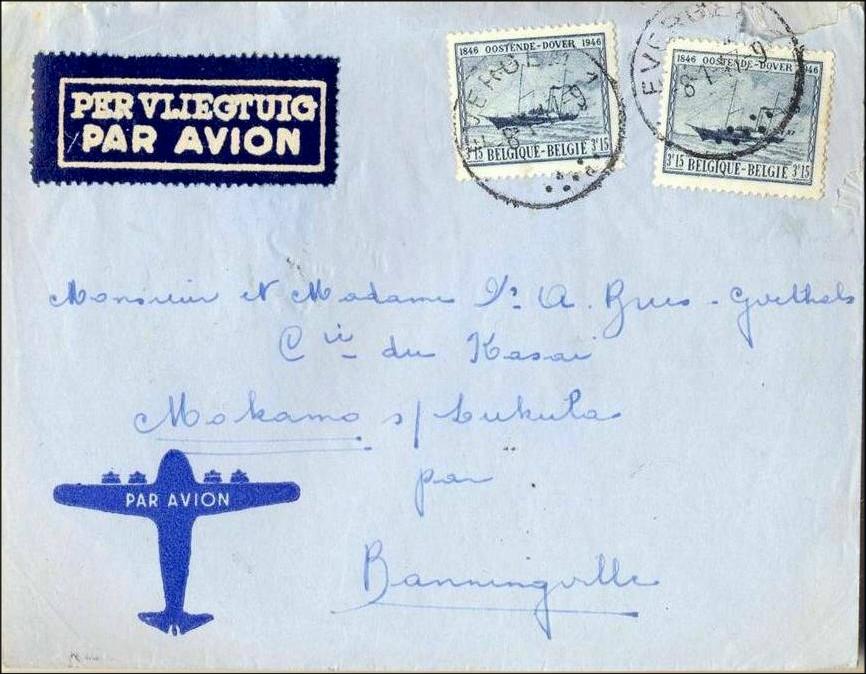 PER VLIEGTUIG
PAR AVION
1846 OOSTENDE-DOVER 1946
3F15 BELGIQUE-BELGIË 3F15
1846 OOSTENDE-DOVER 1946
3F15 BELGIQUE-BELGIË 3F15
EVERGEM
EVERGEM
Monsieur et Madame A. Goethals
Cie du Kasai
Mokamo s/ Lukula
par
Banningville
PAR AVION